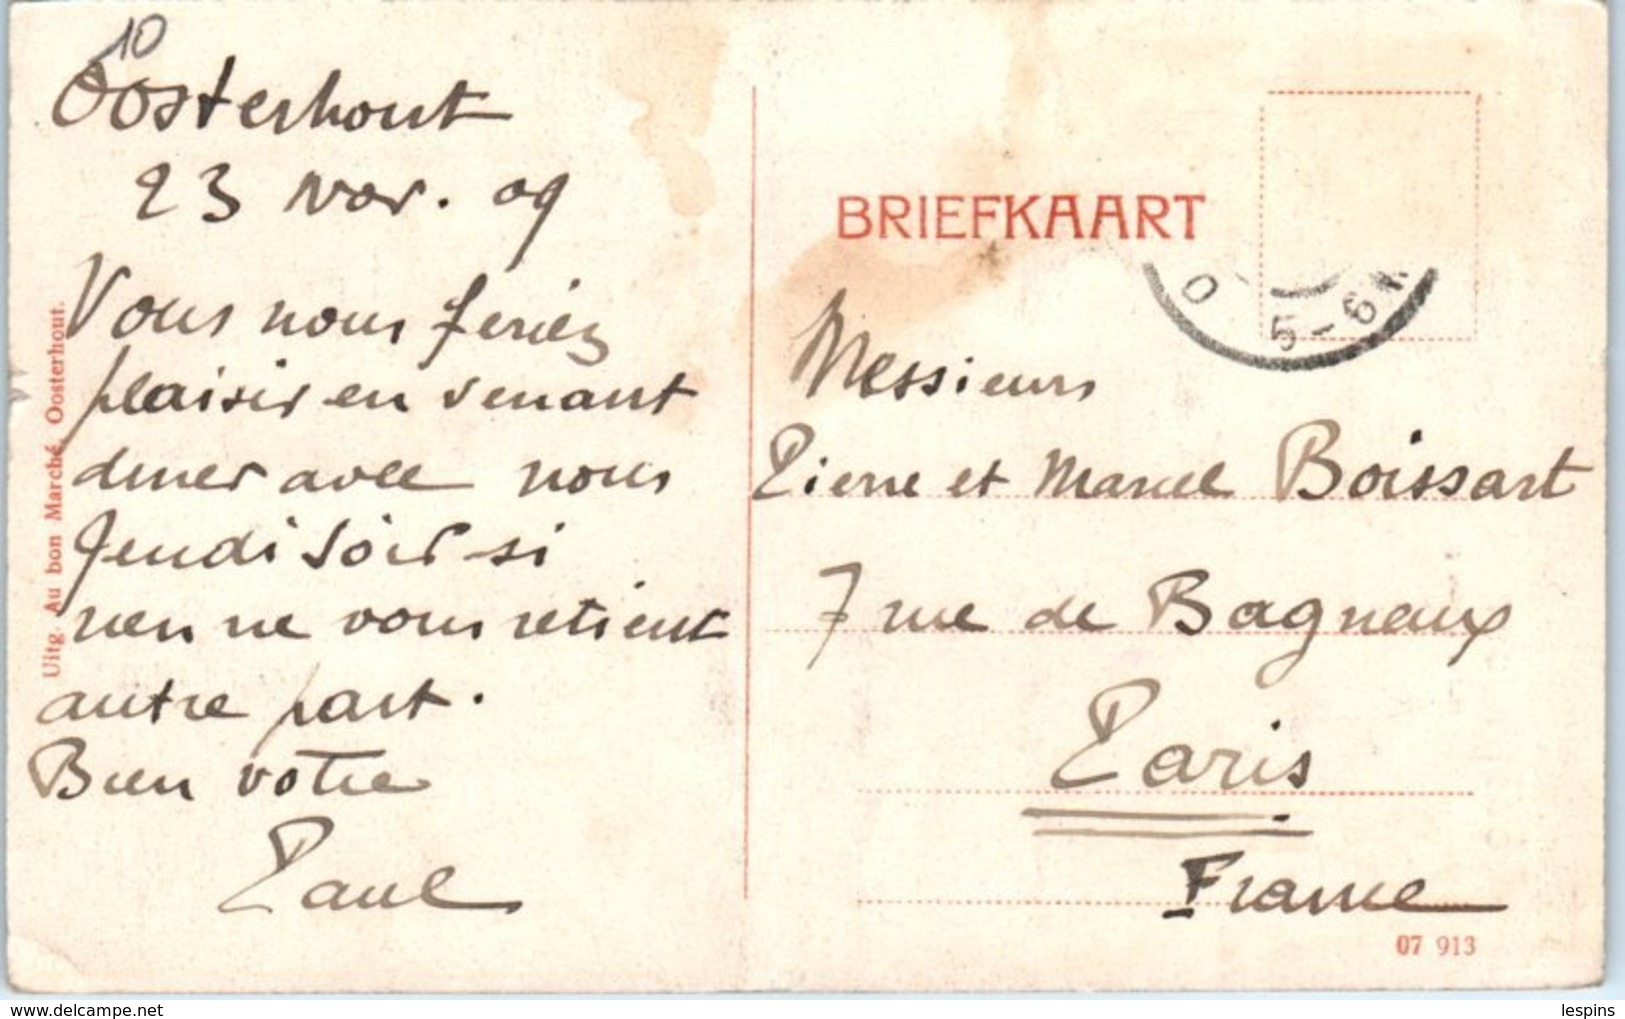 10
Oosterhout
23 nov. 09
Vous nous feriez
plaisir en venant
diner avec nous
Jeudi soir si
rien ne vous retient
autre part.
Bien votre
Paul
Uitg Au bon Marché, Oosterhout.
BRIEFKAART
5-6 N
Messieurs
Pierre et Marcel Boissart
7 rue de Bagneux
Paris
France
07 913
delcampe.net
lespins